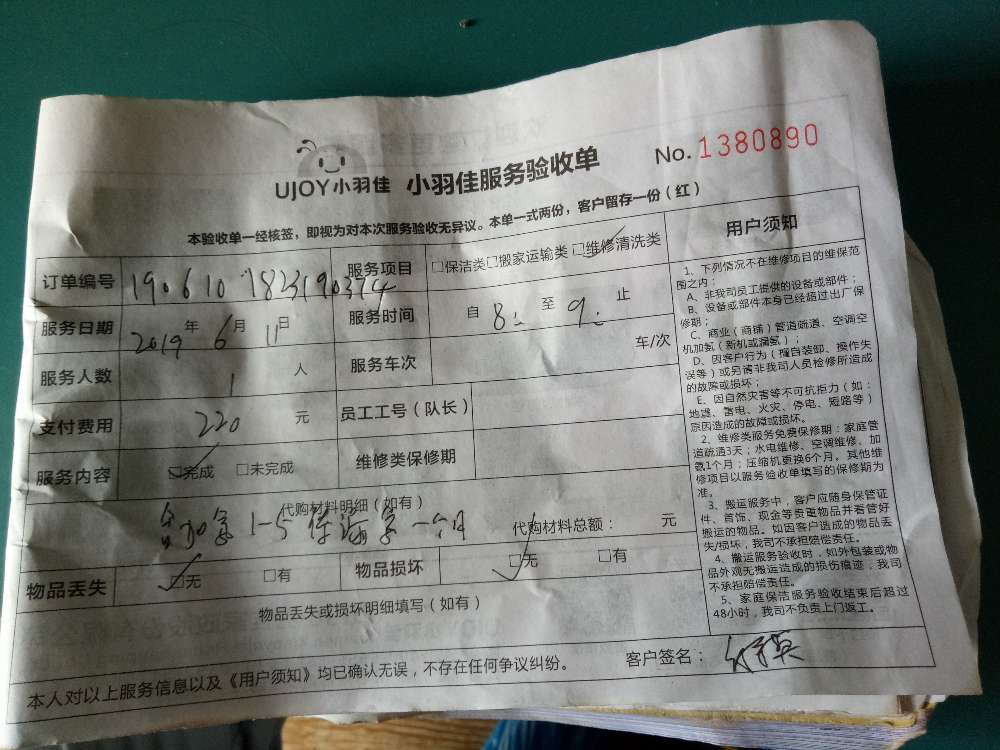 UJOY小羽佳 小羽佳服务验收单 No. 1380890
本验收单一经核签，即视为对本次服务验收无异议。本单一式两份，客户留存一份（红）
订单编号 190610 服务项目 □保洁类□搬家运输类□维修清洗类
服务日期 2019年6月11日 服务时间 自 8: 至 9: 止
服务人数 1 人 服务车次 车/次
支付费用 220 元 员工工号（队长）
服务内容 □完成 □未完成 维修类保修期
代购材料明细（如有）
1-5 代购材料总额： 元
物品丢失 □无 □有 物品损坏 □无 □有
物品丢失或损坏明细填写（如有）
本人对以上服务信息以及《用户须知》均已确认无误，不存在任何争议纠纷。 客户签名：
用户须知
1、下列情况不在维修项目的维保范
围之内：
A、非我司员工提供的设备或部件；
B、设备或部件本身已经超过出厂保
修期；
C、商业（商铺）管道疏通、空调空
机加氨（新机或漏氨）；
D、因客户行为（擅自装卸、操作失
误等）或另请非我司人员检修所造成
的故障或损坏；
E、因自然灾害等不可抗拒力（如：
地震、雷电、火灾、停电、短路等）
原因造成的故障或损坏。
2、维修类服务免费保修期：家庭管
道疏通3天；水电维修、空调维修、加
氨1个月；压缩机更换6个月。其他维
修项目以服务验收单填写的保修期为
准。
3、搬运服务中，客户应随身保管证
件、首饰、现金等贵重物品并看管好
搬运的物品。如因客户造成的物品丢
失/损坏，我司不承担赔偿责任。
4、搬运服务验收时，如外包装或物
品外观无搬运造成的损伤痕迹，我司
不承担赔偿责任。
5、家庭保洁服务验收结束后超过
48小时，我司不负责上门返工。